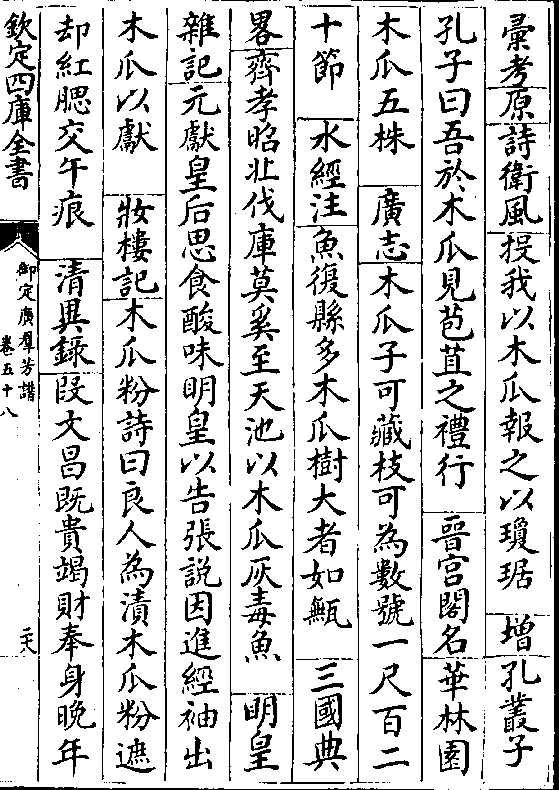 彚考原詩衛風投我以木瓜報之以瓊琚　增孔叢子
孔子曰吾於木瓜見苞苴之禮行　晉宮閣名華林園
木瓜五株　廣志木瓜子可藏枝可為數號一尺百二
十節　水經注魚復縣多木瓜樹大者如甒　三國典
畧齊孝昭北伐庫莫奚至天池以木瓜灰毒魚　明皇
雜記元獻皇后思食酸味明皇以告張說因進經袖出
木瓜以獻　妝樓記木瓜粉詩曰良人為漬木瓜粉遮
却紅腮交午痕　清異錄段文昌既貴竭財奉身晚年
欽定四庫全書
御定廣羣芳譜
卷五十八
二八